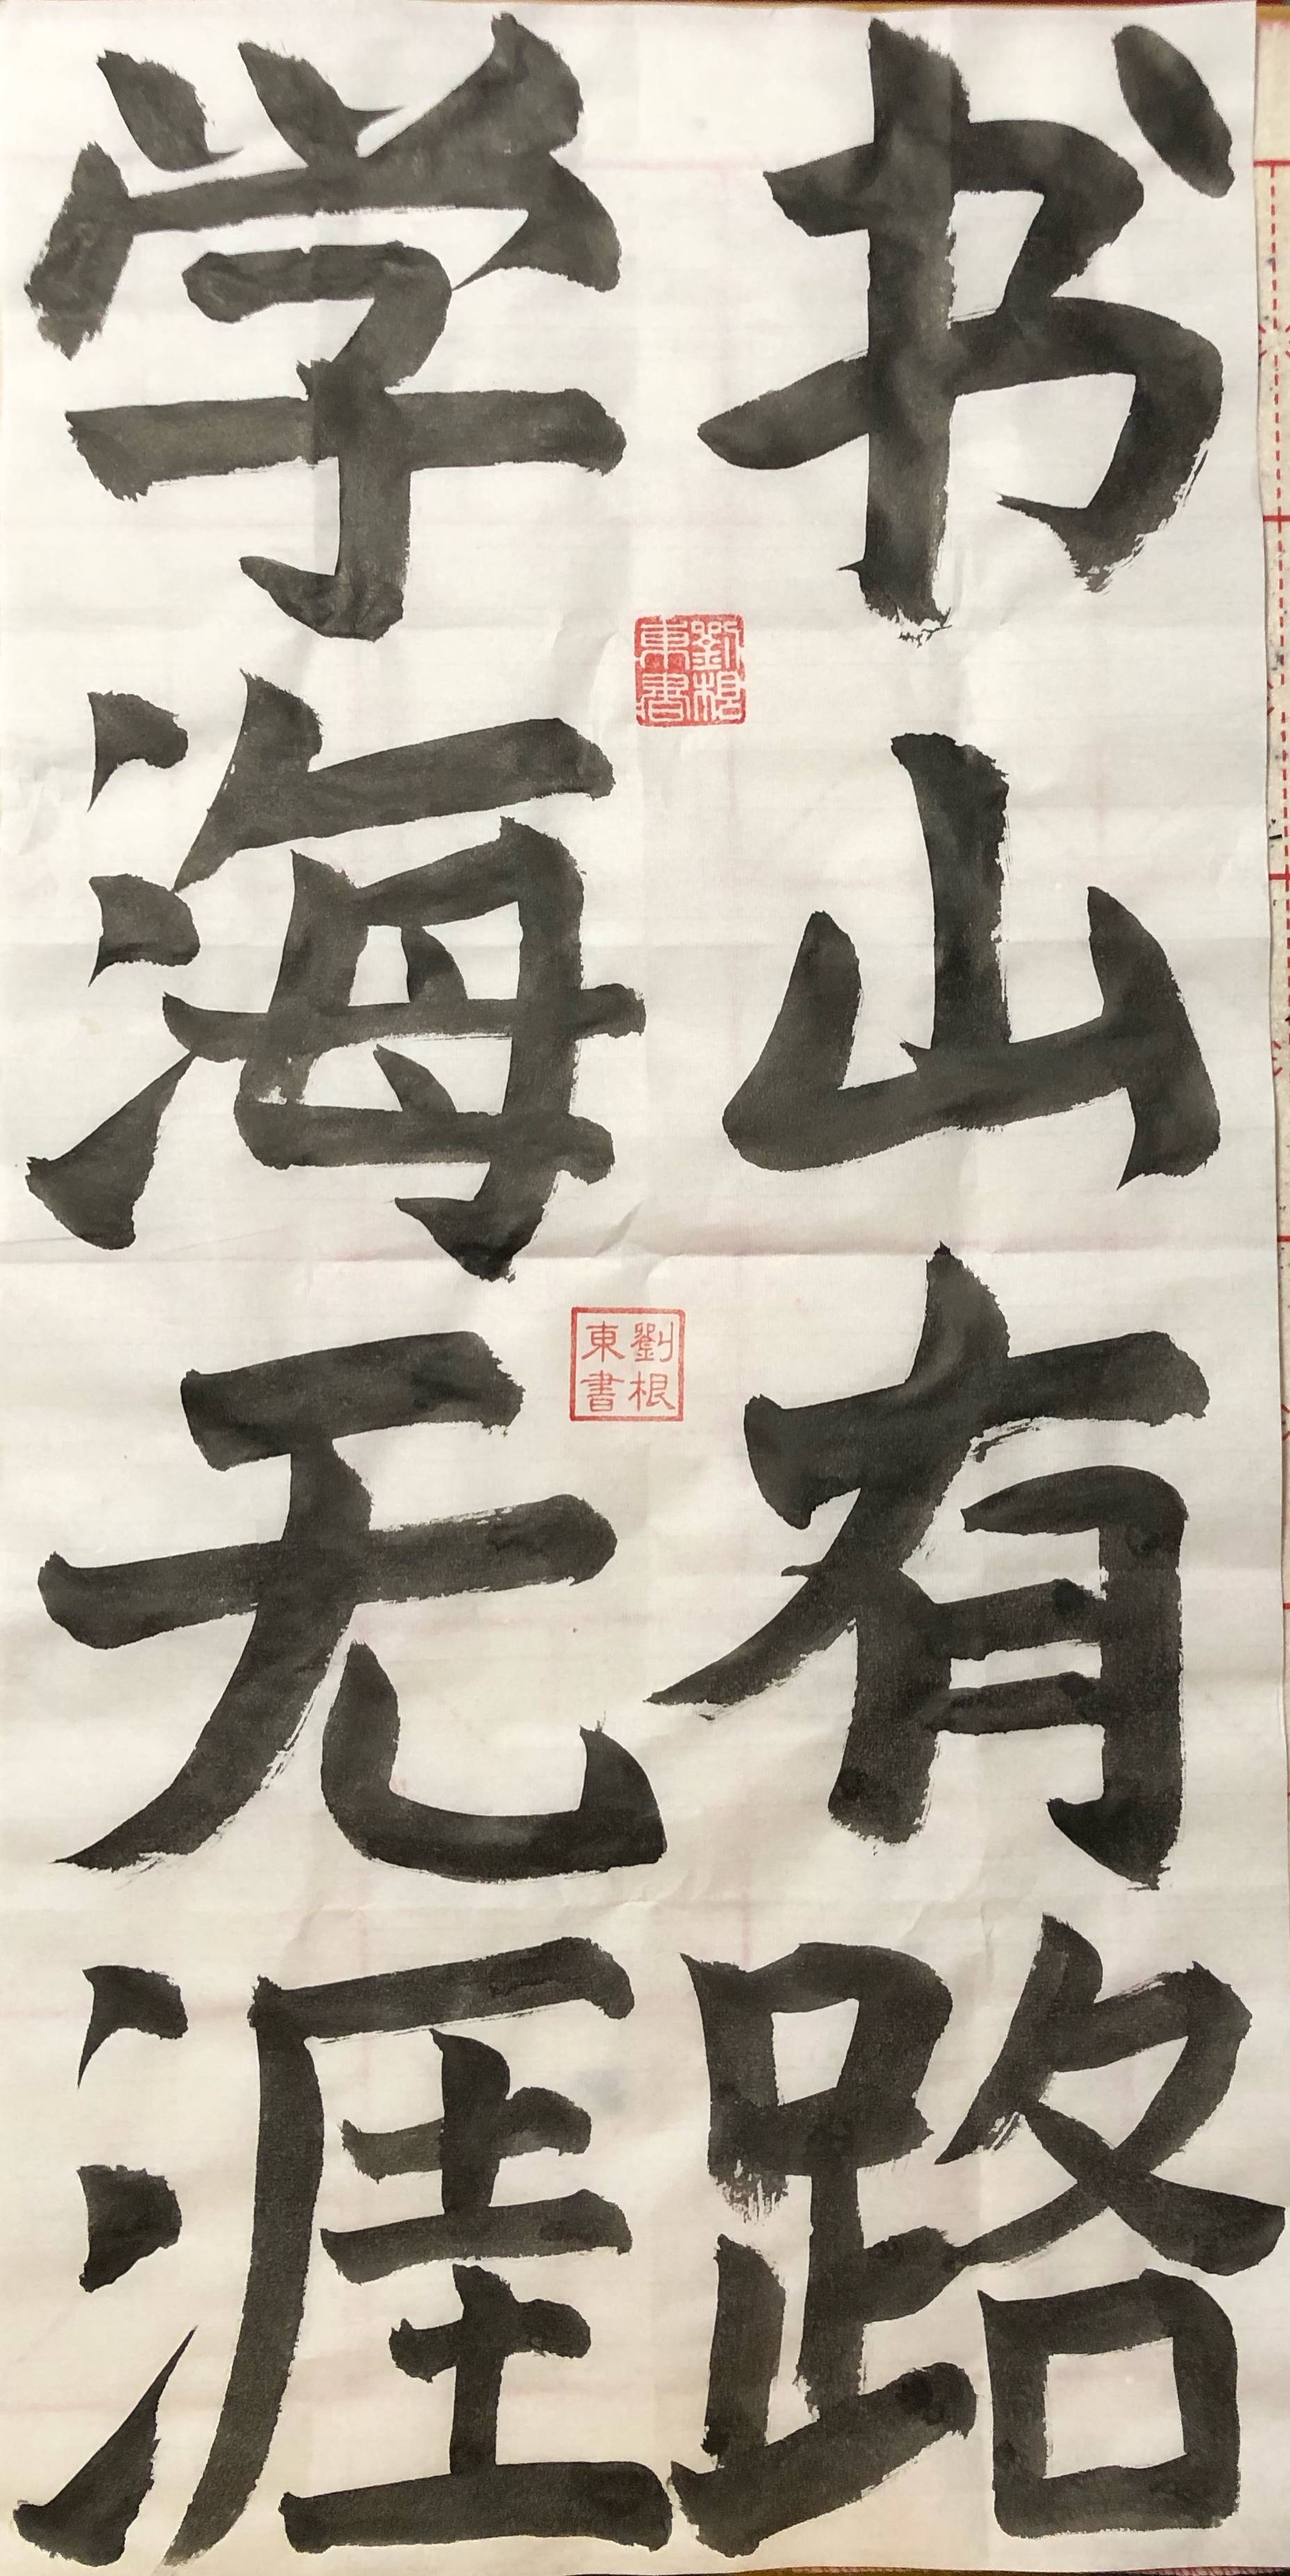 书山有路
学海无涯
劉根
東書
劉根
東書